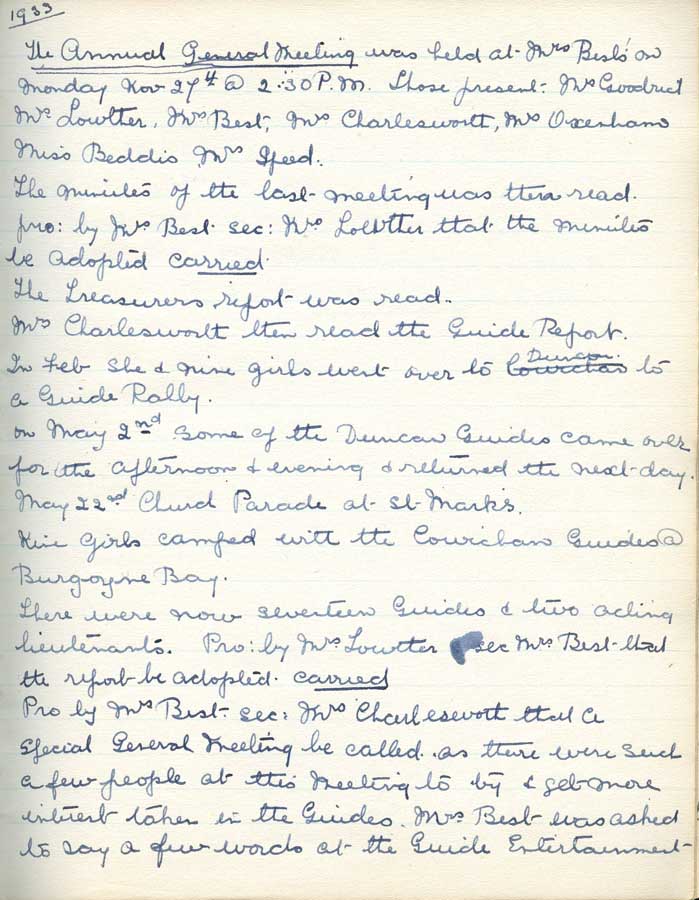 1933
The Annual General Meeting was held at Mrs Best's on
Monday Nov 27th @ 2.30 P.M. Those present: Mrs Goodrich
Mrs Lowther, Mrs Best, Mrs Charlesworth, Mrs Oxenham
Miss Beddis, Mrs Speed.
The minutes of the last meeting was then read.
pro: by Mrs Best sec: Mrs Lowther that the minutes
be adopted carried
The Treasurers report was read.
Mrs Charlesworth then read the Guide Report.
In Feb she & nine girls went over to Cowichan Duncan to
a Guide Rally.
on May 2nd some of the Duncan Guides came over
for the afternoon & evening & returned the next day.
May 22nd Church Parade at St Marks.
Nine Girls camped with the Cowichan Guides @
Burgoyne Bay.
There were now seventeen Guides & two acting
lieutenants. Pro: by Mrs Lowther sec Mrs Best that
the report be adopted. carried
Pro by Mrs Best. sec: Mrs Charlesworth that a
special General Meeting be called. as there were such
a few people at this Meeting to try & get more
interest taken in the Guides. Mrs Best was asked
to say a few words at the Guide Entertainment